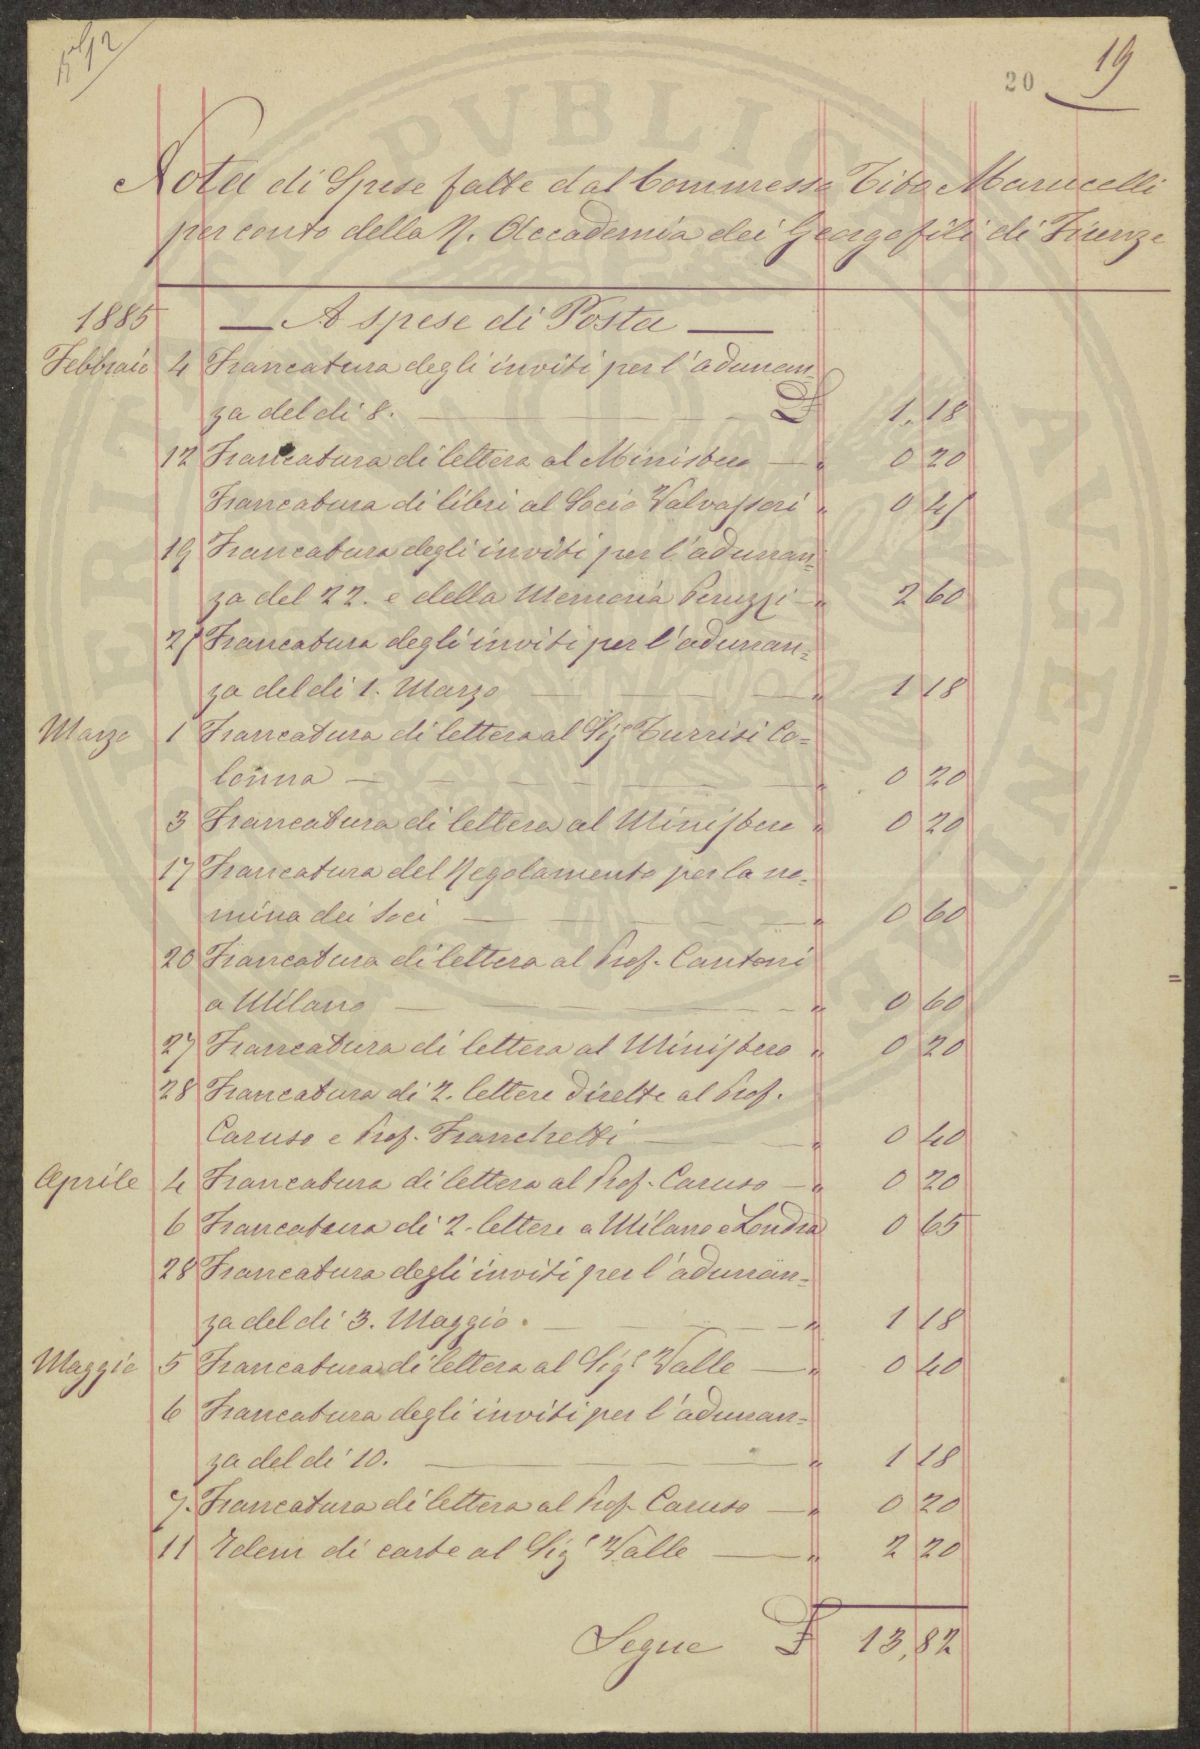 20
19
PROSPERITATI PVBLICAE AVGENDAE
Nota di Spese fatte dal Commesso Tito Marucelli
per conto della R. Accademia dei Georgofili di Firenze
1885 — A spese di Posta —
Febbraio 4 Francatura degli inviti per l'adunan=
za del dì 8. — £ 1,18
12 Francatura di lettera al Ministero — " 0 20
Francatura di libri al Socio Valvassori " 0 45
19 Francatura degli inviti per l'adunan=
za del 22. e della Memoria Peruzzi — " 2 60
25 Francatura degli inviti per l'adunan=
za del dì 1. Marzo — " 1 18
Marzo 1 Francatura di lettera al Sige Turrisi Co=
lonna — " 0 20
3 Francatura di lettera al Ministero " 0 20
17 Francatura del Regolamento per la no=
mina dei Soci — " 0 60
20 Francatura di lettera al Prof. Cantoni
a Milano — " 0 60
27 Francatura di lettera al Ministero " 0 20
28 Francatura di 2. lettere dirette al Prof.
Caruso e Prof. Franchetti — " 0 40
Aprile 4 Francatura di lettera al Prof. Caruso — " 0 20
6 Francatura di 2. lettere a Milano e Londra 0 65
28 Francatura degli inviti per l'adunan=
za del dì 3. Maggio. — " 1 18
Maggio 5 Francatura di lettera al Sige Valle — " 0 40
6 Francatura degli inviti per l'adunan=
za del dì 10. — " 1 18
7. Francatura di lettera al Prof. Caruso — " 0 20
11 Idem di carte al Sige Valle — " 2 20
Segue £ 13,82